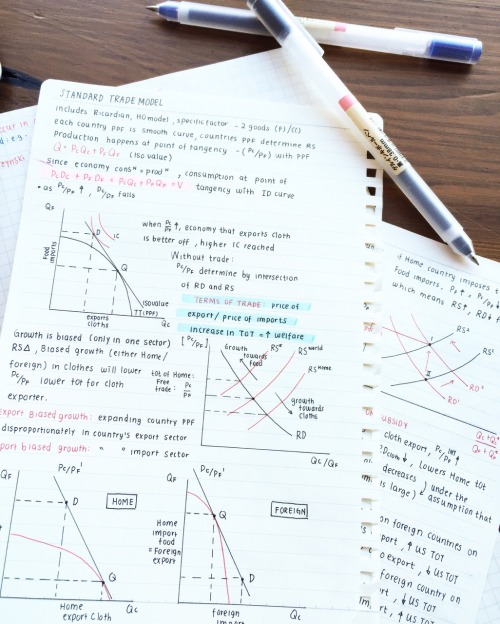 STANDARD TRADE MODEL
includes Ricardian, HO model, specific factor - 2 goods (F)/(C)
each country PPF is smooth curve, countries PPF determine RS
Production happens at point of tangency -(Pc/PF) with PPF
Q = PcQc + PFQF (iso value)
since economy consⁿ = prodⁿ, consumption at point of
PcDc + PFDF = PcQc + PFQF = V tangency with ID curve
• as Pc/PF ↑, PF/Pc falls
QF
D
IC
Food imports
Q
isovalue
TT(PPF)
exports cloths
Qc
when Pc/PF ↑, economy that exports cloth
is better off, higher IC reached
Without trade:
Pc/PF determine by intersection
of RD and RS
TERMS OF TRADE: price of
export/ price of imports
increase in TOT = ↑ welfare
Growth is biased (only in one sector)
RS∆, Biased growth (either Home/
foreign) in clothes will lower
Pc/PF lower tot for cloth
exporter.
tot of Home:
Free trade: Pc/PF
[Pc/PF]
Growth towards food
RS world
RS Home
growth towards cloths
RD
Qc/QF
Export Biased growth: expanding country PPF
disproportionately in country's export sector
port biased growth: " " import sector
QF
Pc/PF'
D
HOME
Q
Home export cloth
Qc
QF
Pc/PF'
Q
FOREIGN
Home import food = Foreign export
D
foreign
Qc
if Home country imposes t
Food imports, PF ↑,
which means RS↑, RD
RS'
RS²
1
2
RD²
RD'
UBSIDY
cloth export,
lowers Home tot
decreases) under the
is large) assumption that
on foreign countries on
port, ↑ US TOT
o export, ↓ US TOT
foreign country on
rt, ↓ US TOT
↑ US TOT